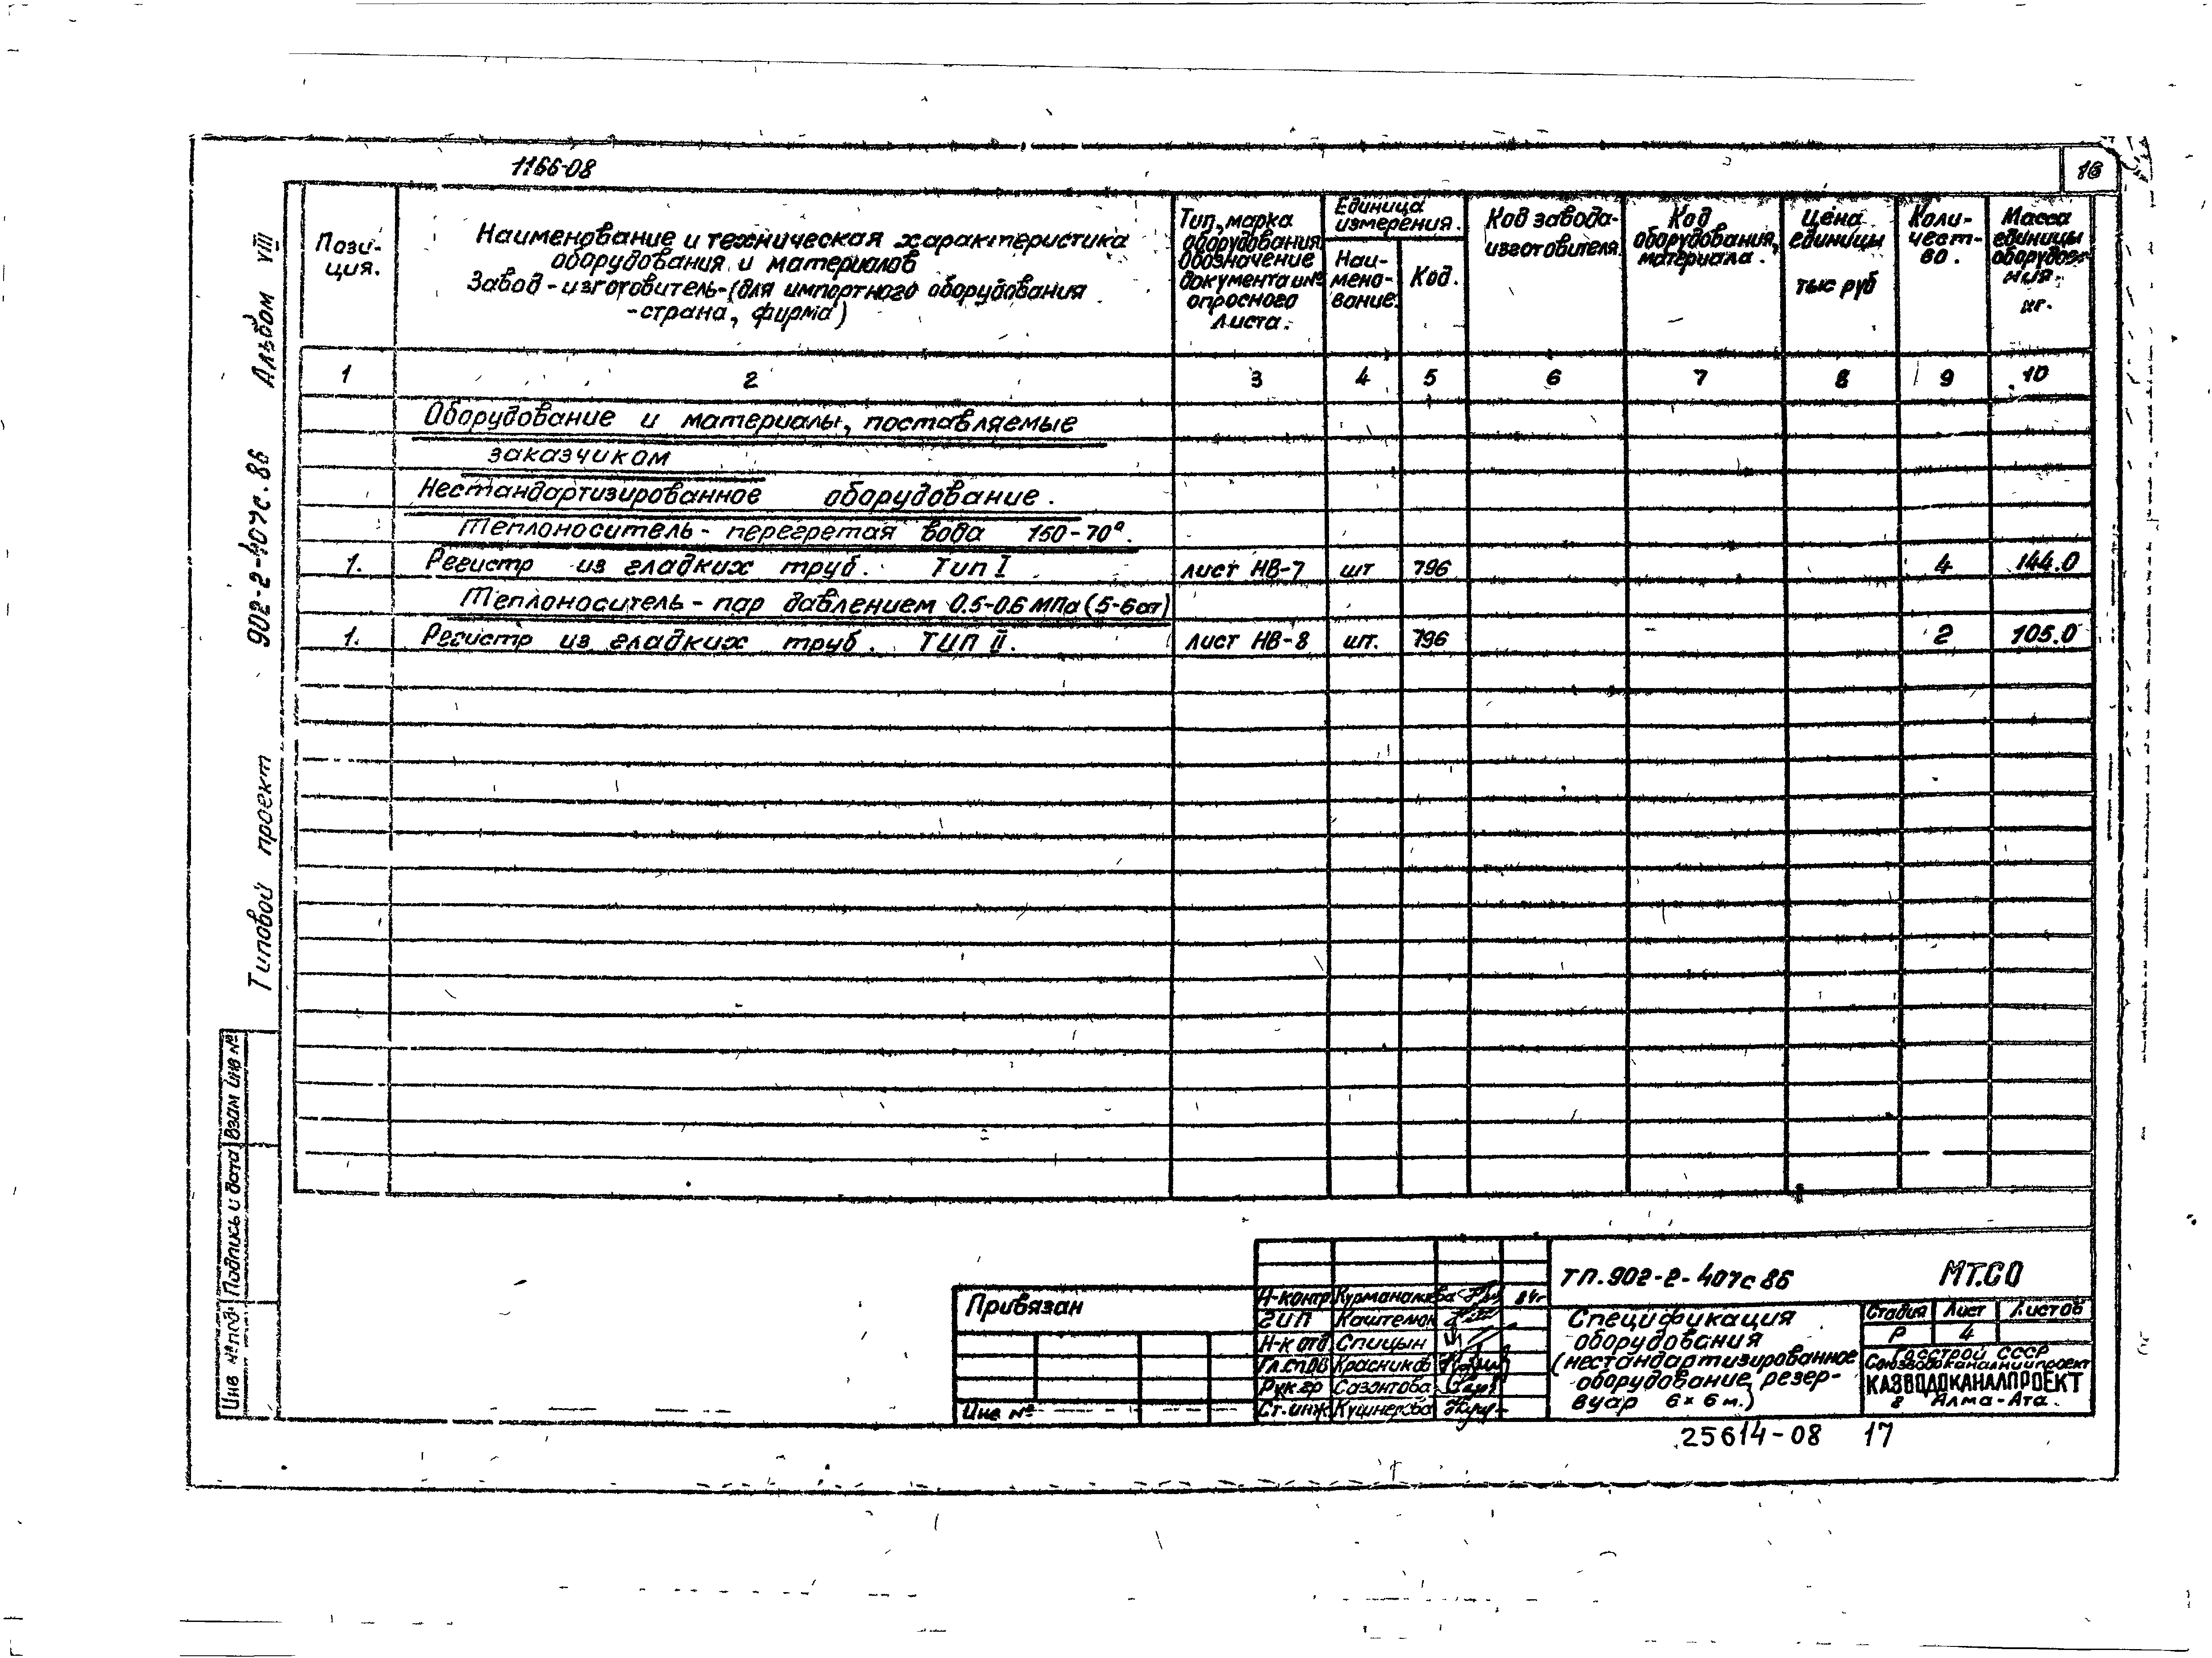 1166-08
16
Типовой проект 902-2-407с.86 Альбом VIII
Пози-
ция.
Наименование и техническая характеристика
оборудования и материалов
Завод-изготовитель-(для импортного оборудования
-страна, фирма)
Тип, марка
оборудования
Обозначение
документа и №
опросного
листа.
Единица
измерения.
Наи-
мено-
вание
Код.
Код завода-
изготовителя
Код
оборудования,
материала.
Цена
единицы
тыс руб
Коли-
чест-
во.
Масса
единицы
оборудова-
ния.
кг.
1 2 3 4 5 6 7 8 9 10
Оборудование и материалы, поставляемые
заказчиком
Нестандартизированное оборудование.
Теплоноситель - перегретая вода 150-70°.
1. Регистр из гладких труб. Тип I лист НВ-7 шт 796 4 144.0
Теплоноситель - пар давлением 0.5-0.6 МПа (5-6 ат)
1. Регистр из гладких труб. ТИП II. лист НВ-8 шт. 796 2 105.0
Взам инв №
Подпись и дата
Инв № под.
Привязан
Инв №
Н-контр Курманалиева 84г
ГИП Каштелюк
Н-к отд Спицын
Гл.спов Красников
Рук.гр Сазонтова
Ст.инж Кушнерова
ТП.902-2-407с86 МТ.СО
Спецификация
оборудования
(нестандартизированное
оборудование, резер-
вуар 6×6 м.)
Стадия Лист Листов
Р 4
Госстрой СССР
Союзводоканалниипроект
КАЗВОДОКАНАЛПРОЕКТ
г Алма-Ата.
25614-08 17